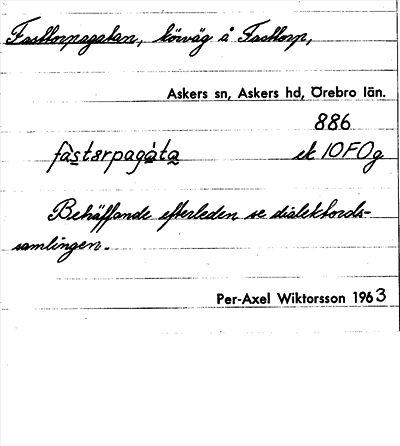 Fasttorpagatan, körväg å Fasttorp,
Askers sn, Askers hd, Örebro län.
886
fàstərpagàta ek 10F0g
Beträffande efterleden se dialektords-
samlingen.
Per-Axel Wiktorsson 1963